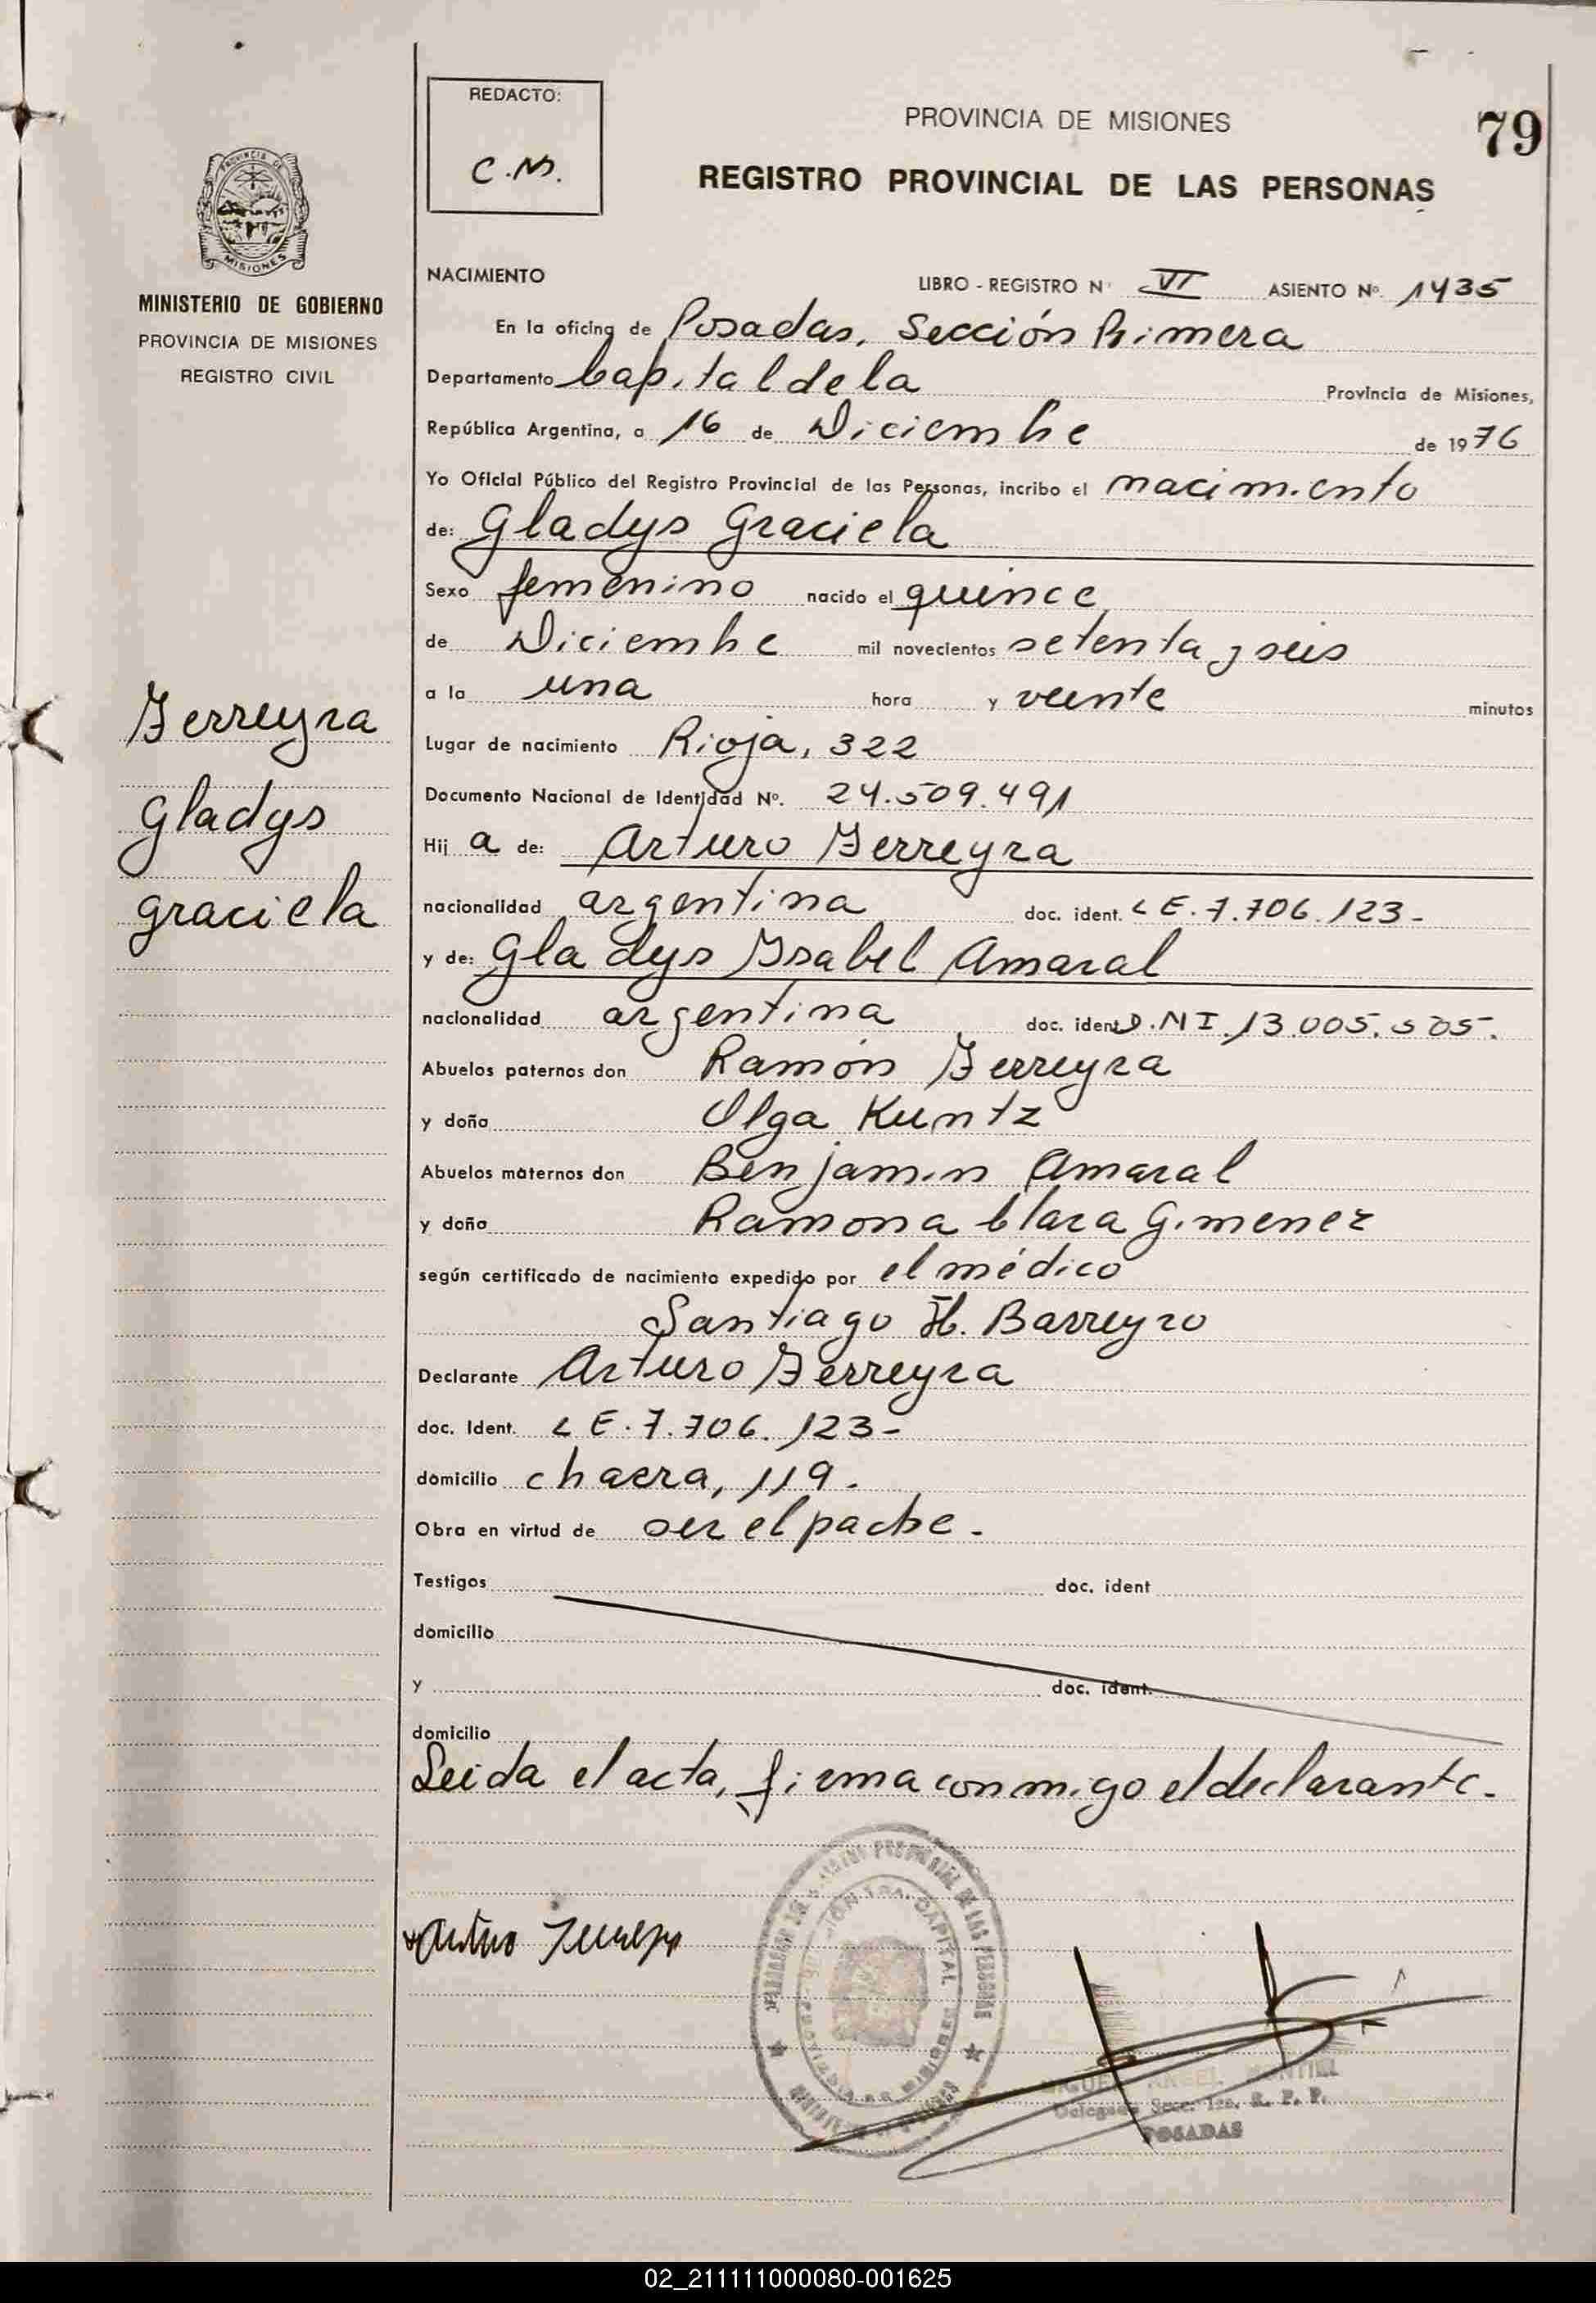 REDACTO:
C.M.
PROVINCIA DE MISIONES
79
REGISTRO PROVINCIAL DE LAS PERSONAS
PROVINCIA DE
MISIONES
MINISTERIO DE GOBIERNO
PROVINCIA DE MISIONES
REGISTRO CIVIL
Ferreyra
Gladys
Graciela
NACIMIENTO LIBRO - REGISTRO Nº VI ASIENTO Nº. 1435
En la oficina de Posadas, Sección Primera
Departamento Capital de la Provincia de Misiones,
República Argentina, a 16 de Diciembre de 1976
Yo Oficial Público del Registro Provincial de las Personas, incribo el nacimiento
de: Gladys Graciela
Sexo femenino nacido el quince
de Diciembre mil novecientos setenta y seis
a la una hora y veinte minutos
Lugar de nacimiento Rioja, 322
Documento Nacional de Identidad Nº. 24.509.491
Hij a de: Arturo Ferreyra
nacionalidad argentina doc. ident. L E. 7.706.123-
y de: Gladys Ysabel Amaral
nacionalidad argentina doc. ident D.N I. 13.005.505.
Abuelos paternos don Ramón Ferreyra
y doña Olga Kuntz
Abuelos maternos don Benjamin Amaral
y doña Ramona Clara Gimenez
según certificado de nacimiento expedido por el médico
Santiago H. Barreyro
Declarante Arturo Ferreyra
doc. Ident. L E. 7.706.123-
domicilio chacra, 119.
Obra en virtud de ser el padre.
Testigos doc. ident
domicilio
y doc. ident.
domicilio
Leida el acta, firma conmigo el declarante.
Arturo Ferreyra
PROVINCIAL DE LAS PERSONAS
CAPITAL
MIGUEL ANGEL MONTIEL
Delegado Secc. 1ra. R. P. P.
POSADAS
02_211111000080-001625